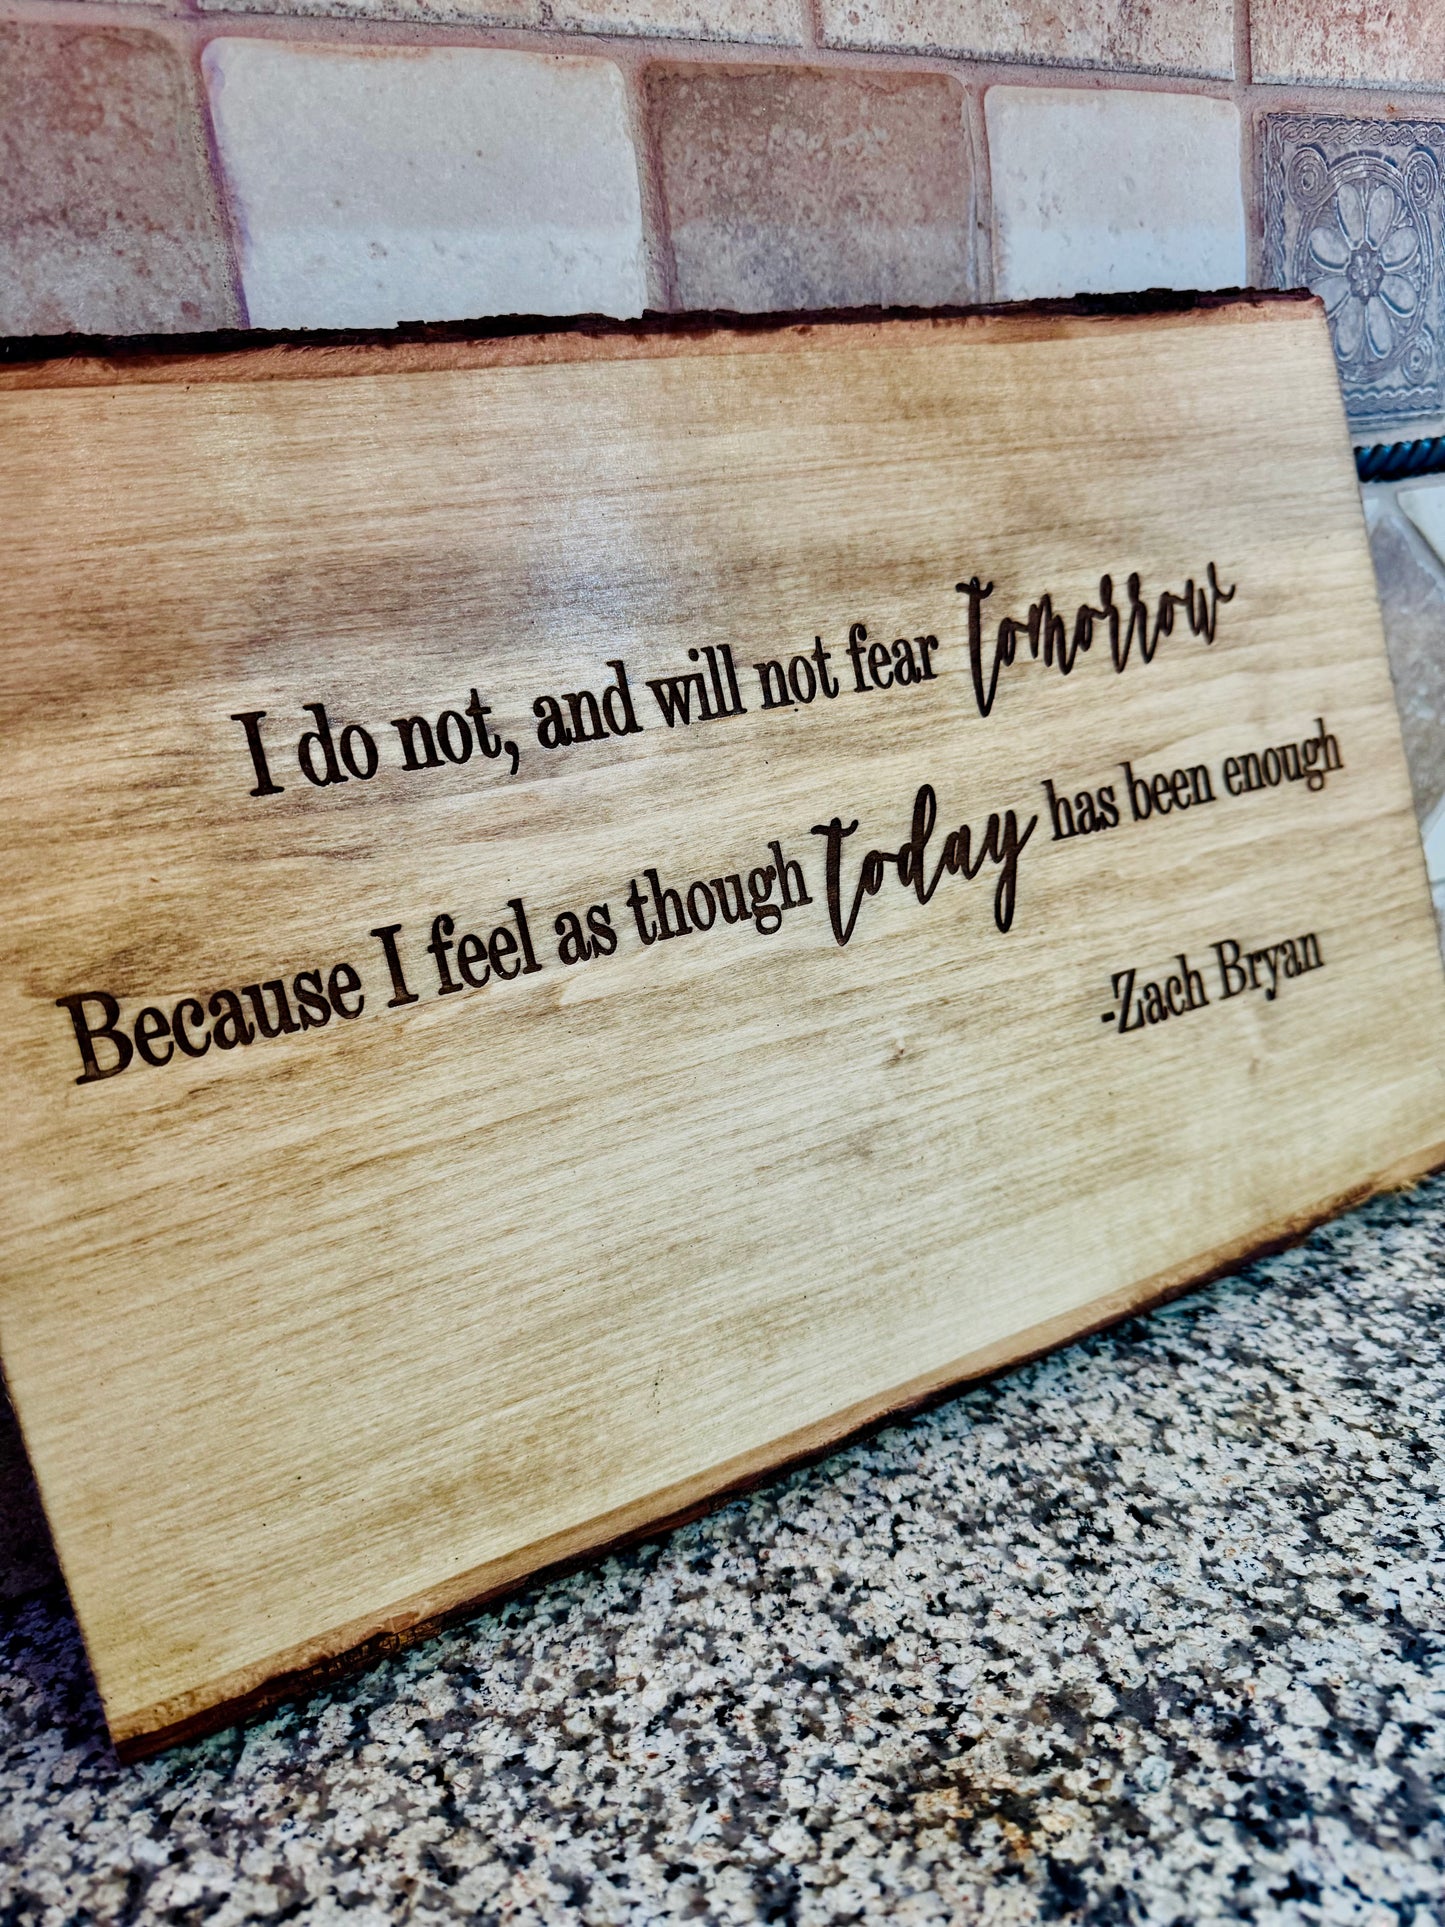 I do not, and will not fear tomorrow
Because I feel as though today has been enough
-Zach Bryan